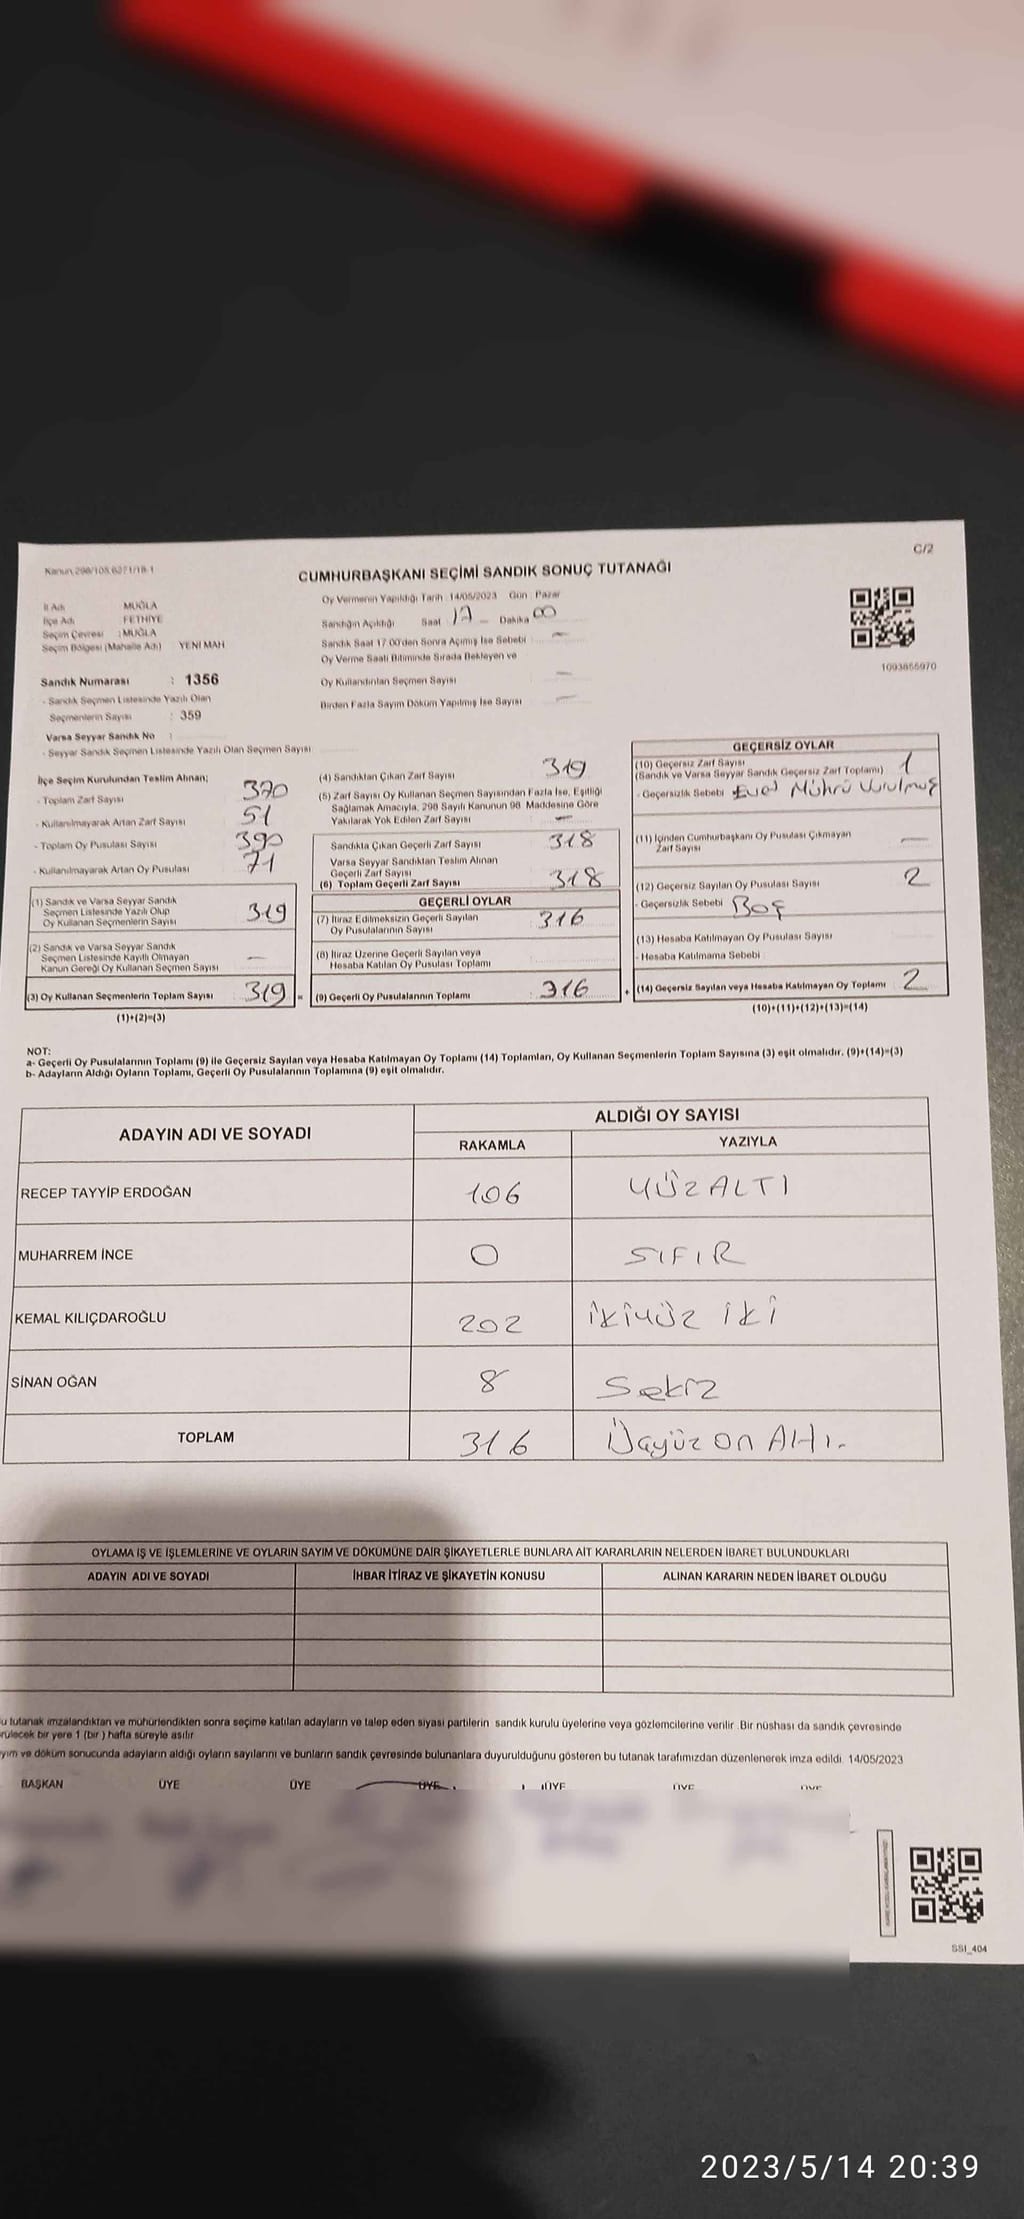 Kanun,298/105,6271/18-1
C/2
CUMHURBAŞKANI SEÇİMİ SANDIK SONUÇ TUTANAĞI
İl Adı MUĞLA
İlçe Adı FETHİYE
Seçim Çevresi : MUĞLA
Seçim Bölgesi (Mahalle Adı) YENİ MAH
Oy Vermenin Yapıldığı Tarih : 14/05/2023 Gün : Pazar
Sandığın Açıldığı Saat 17 Dakika 00
Sandık Saat 17:00'den Sonra Açılmış İse Sebebi —
Oy Verme Saati Bitiminde Sırada Bekleyen ve
Oy Kullandırılan Seçmen Sayısı —
Birden Fazla Sayım Döküm Yapılmış İse Sayısı —
1093855970
Sandık Numarası : 1356
- Sandık Seçmen Listesinde Yazılı Olan
Seçmenlerin Sayısı : 359
Varsa Seyyar Sandık No :
- Seyyar Sandık Seçmen Listesinde Yazılı Olan Seçmen Sayısı
İlçe Seçim Kurulundan Teslim Alınan;
- Toplam Zarf Sayısı 370
- Kullanılmayarak Artan Zarf Sayısı 51
- Toplam Oy Pusulası Sayısı 390
- Kullanılmayarak Artan Oy Pusulası 71
(1) Sandık ve Varsa Seyyar Sandık
Seçmen Listesinde Yazılı Olup
Oy Kullanan Seçmenlerin Sayısı 319
(2) Sandık ve Varsa Seyyar Sandık
Seçmen Listesinde Kayıtlı Olmayan
Kanun Gereği Oy Kullanan Seçmen Sayısı —
(3) Oy Kullanan Seçmenlerin Toplam Sayısı 319 =
(1)+(2)=(3)
(4) Sandıktan Çıkan Zarf Sayısı 319
(5) Zarf Sayısı Oy Kullanan Seçmen Sayısından Fazla İse, Eşitliği
Sağlamak Amacıyla, 298 Sayılı Kanunun 98. Maddesine Göre
Yakılarak Yok Edilen Zarf Sayısı —
Sandıkta Çıkan Geçerli Zarf Sayısı 318
Varsa Seyyar Sandıktan Teslim Alınan
Geçerli Zarf Sayısı
(6) Toplam Geçerli Zarf Sayısı 318
GEÇERLİ OYLAR
(7) İtiraz Edilmeksizin Geçerli Sayılan
Oy Pusulalarının Sayısı : 316
(8) İtiraz Üzerine Geçerli Sayılan veya
Hesaba Katılan Oy Pusulası Toplamı
(9) Geçerli Oy Pusulalarının Toplamı : 316 +
GEÇERSİZ OYLAR
(10) Geçersiz Zarf Sayısı
(Sandık ve Varsa Seyyar Sandık Geçersiz Zarf Toplamı) 1
- Geçersizlik Sebebi Evet Mührü Vurulmuş
(11) İçinden Cumhurbaşkanı Oy Pusulası Çıkmayan
Zarf Sayısı —
(12) Geçersiz Sayılan Oy Pusulası Sayısı 2
- Geçersizlik Sebebi Boş
(13) Hesaba Katılmayan Oy Pusulası Sayısı
- Hesaba Katılmama Sebebi
(14) Geçersiz Sayılan veya Hesaba Katılmayan Oy Toplamı 2
(10)+(11)+(12)+(13)=(14)
NOT:
a- Geçerli Oy Pusulalarının Toplamı (9) ile Geçersiz Sayılan veya Hesaba Katılmayan Oy Toplamı (14) Toplamları, Oy Kullanan Seçmenlerin Toplam Sayısına (3) eşit olmalıdır. (9)+(14)=(3)
b- Adayların Aldığı Oyların Toplamı, Geçerli Oy Pusulalarının Toplamına (9) eşit olmalıdır.
ADAYIN ADI VE SOYADI
ALDIĞI OY SAYISI
RAKAMLA YAZIYLA
RECEP TAYYİP ERDOĞAN 106 YÜZALTI
MUHARREM İNCE 0 SIFIR
KEMAL KILIÇDAROĞLU 202 İKİYÜZ İKİ
SİNAN OĞAN 8 Sekiz
TOPLAM 316 Üçyüz on Altı.
OYLAMA İŞ VE İŞLEMLERİNE VE OYLARIN SAYIM VE DÖKÜMÜNE DAİR ŞİKAYETLERLE BUNLARA AİT KARARLARIN NELERDEN İBARET BULUNDUKLARI
ADAYIN ADI VE SOYADI İHBAR İTİRAZ VE ŞİKAYETİN KONUSU ALINAN KARARIN NEDEN İBARET OLDUĞU
u tutanak imzalandıktan ve mühürlendikten sonra seçime katılan adayların ve talep eden siyasi partilerin sandık kurulu üyelerine veya gözlemcilerine verilir. Bir nüshası da sandık çevresinde
rülecek bir yere 1 (bir) hafta süreyle asılır
yım ve döküm sonucunda adayların aldığı oyların sayılarını ve bunların sandık çevresinde bulunanlara duyurulduğunu gösteren bu tutanak tarafımızdan düzenlenerek imza edildi. 14/05/2023
BAŞKAN ÜYE ÜYE ÜYE ÜYE ÜYE ÜYE
SSI_404
2023/5/14 20:39